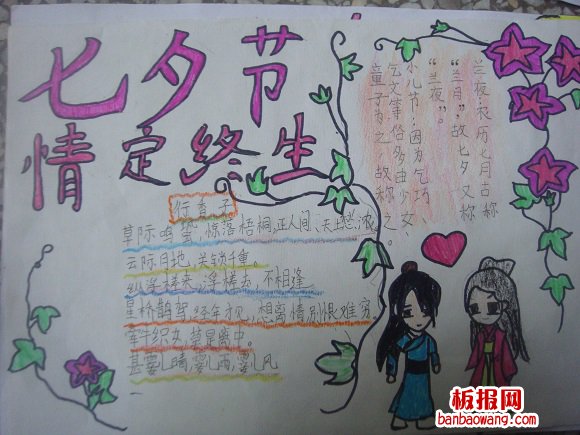 七夕节
情定终生
行香子
草际鸣蛩,惊落梧桐,正人间、天上愁浓
云阶月地,关锁千重。
纵浮槎来,浮槎去,不相逢
星桥鹊驾,经年才见,想离情别恨难穷
牵牛织女,莫是离中。
甚霎儿晴,霎儿雨,霎儿风
兰夜:农历七月古称
“兰月”,故七夕又称
“兰夜”。
小儿节:因为乞巧、
乞文等俗多由少女、
童子为之,故称之。
板报网
banbaowang.com